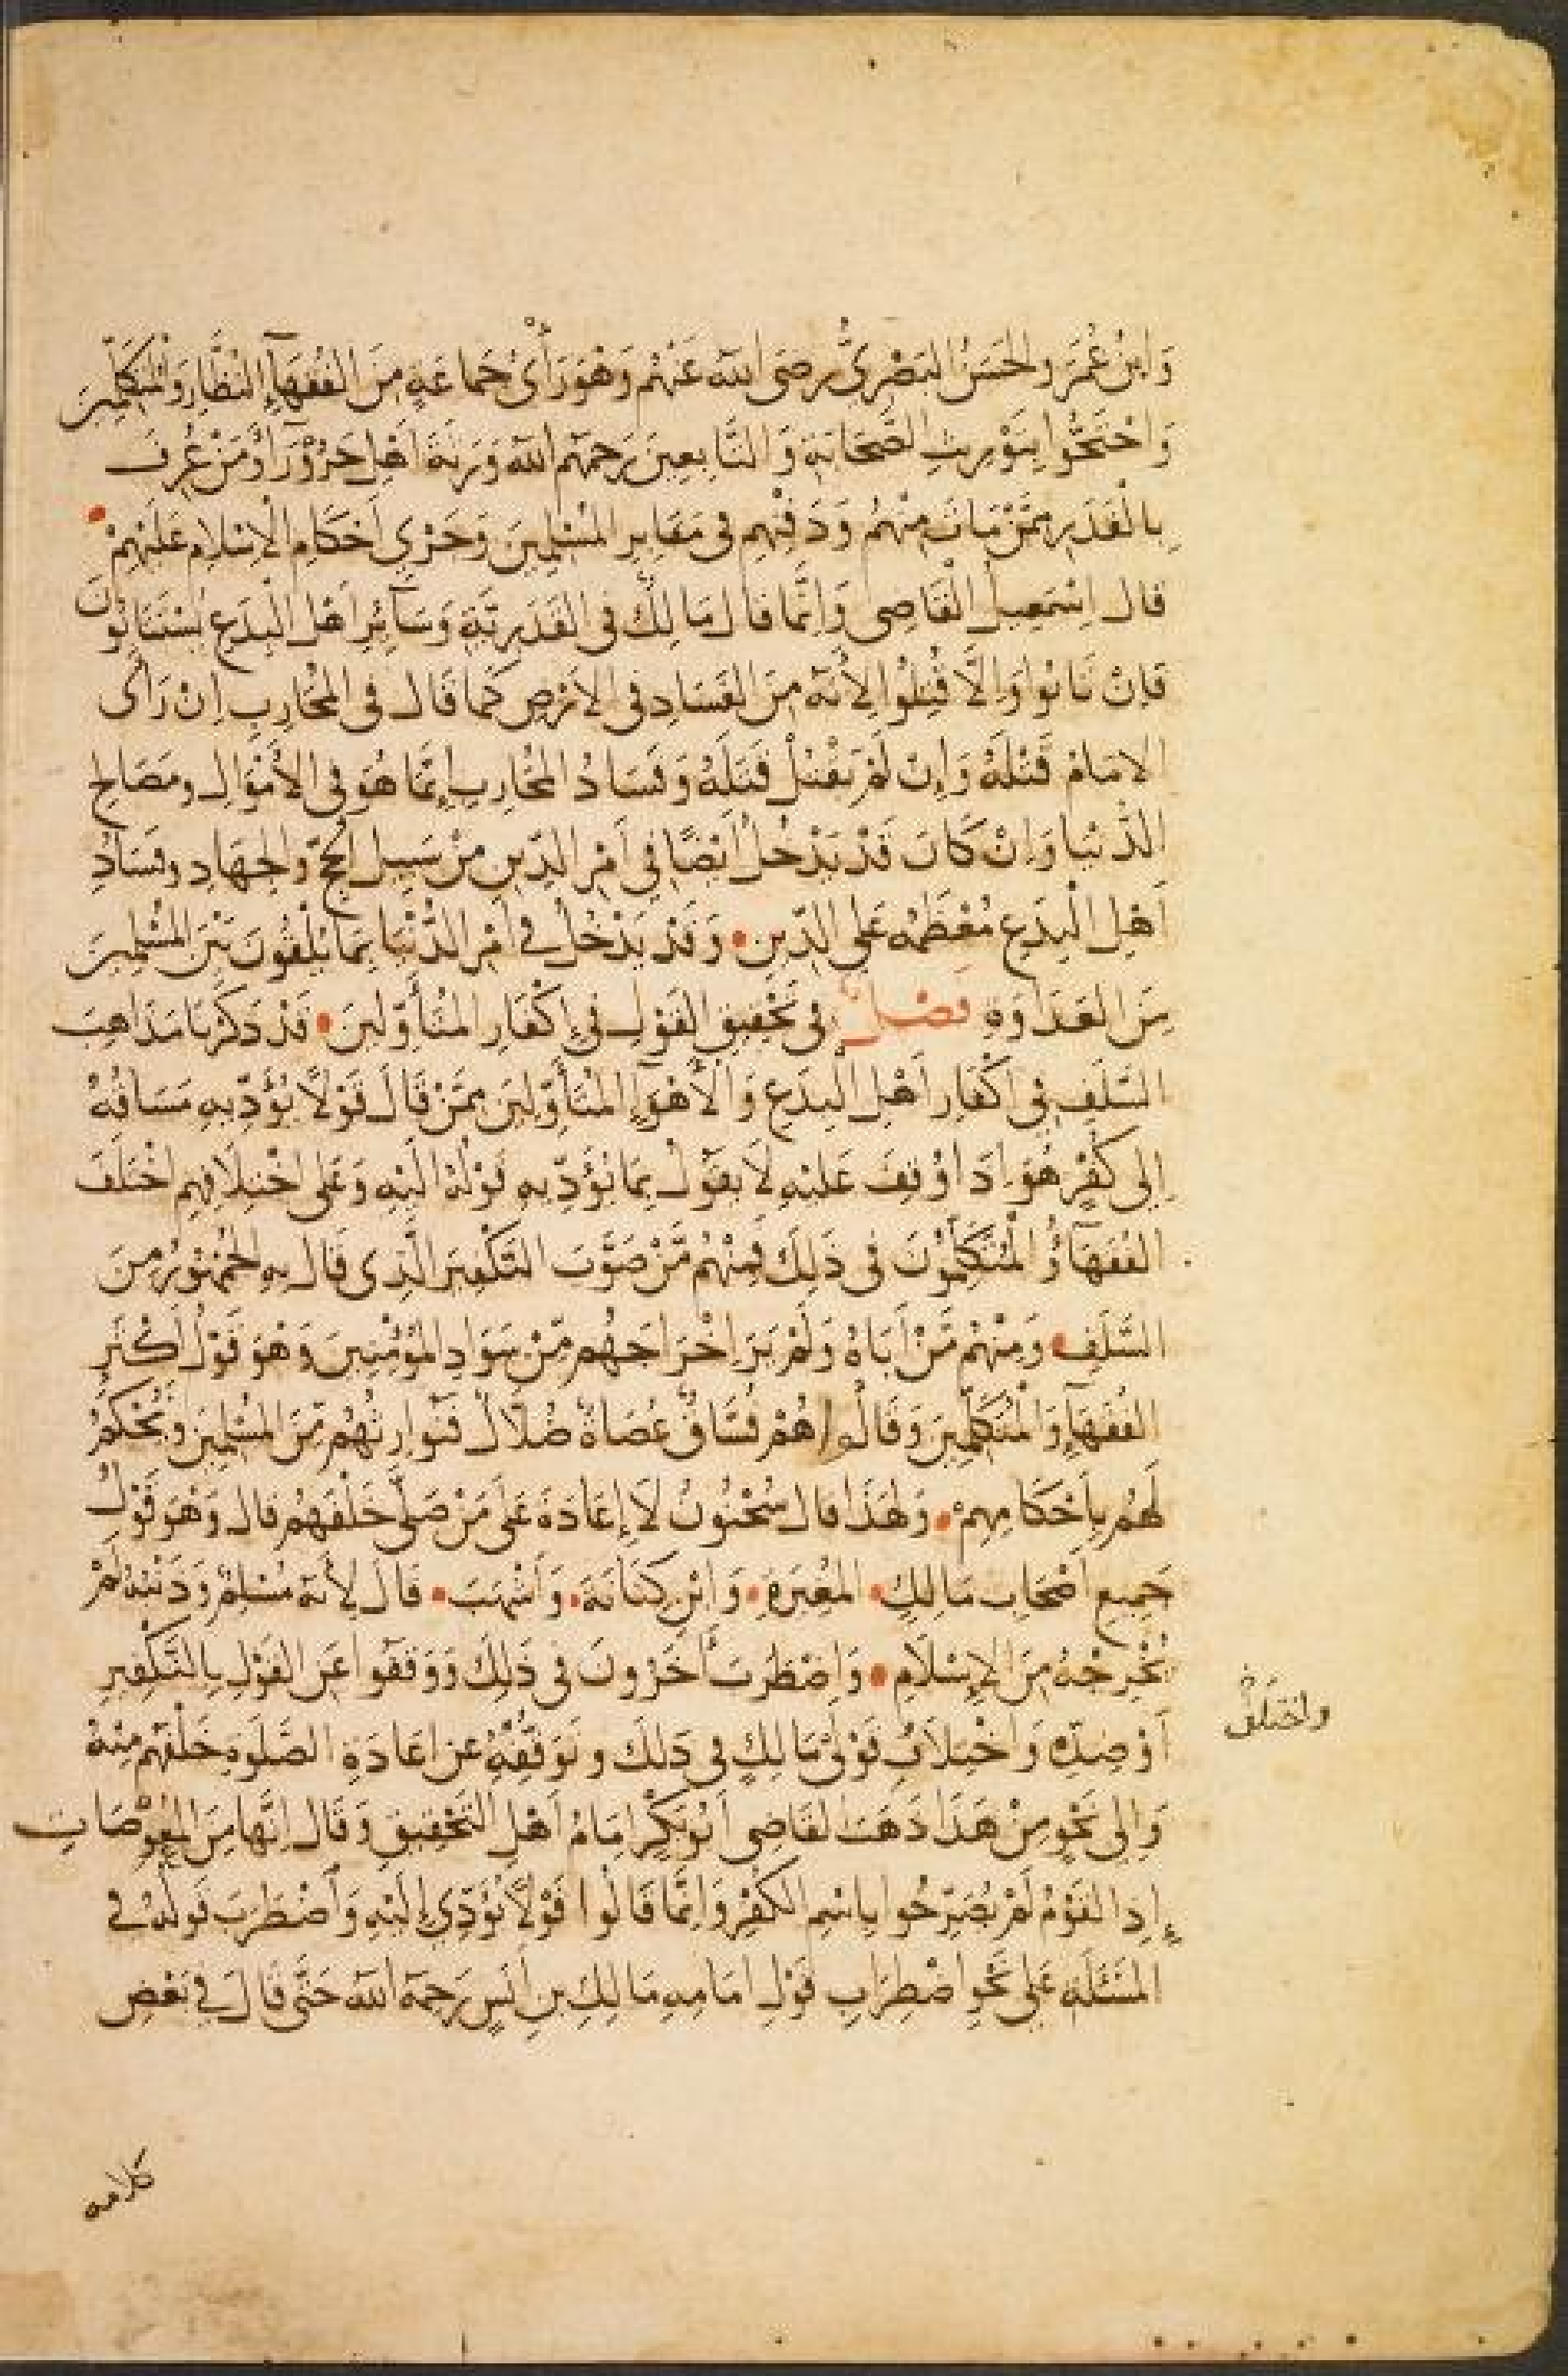 وَابْنُ عُمَرَ وَالحَسَنُ البَصْرِيُّ رضَى اللَّه عَنْهُم وَهُوَ رَأْىُ جَماعَةٍ مِنَ الفُقَهَآءِ النُّظَّارِ وَالْمُتَكَلِّمِينَ
وَاحْتَجُّوا بِتَوْرِيثِ الصَّحَابَةِ وَالتَّابِعِينَ رَحِمَهُم اللَّه وَرَثَةَ أَهْلِ حَرُوْرَآءَ وَمَنْ عُرِفَ
بِالْقَدَرِ مِمَّنْ مَاتَ مِنْهُمْ وَدَفْنِهِم فى مَقَابِرِ المُسْلِمِينَ وَجَرْيِ أَحْكَامِ الْإِسْلَامِ عَلَيْهِمْ
قال إِسْمَعِيلُ الْقَاضِى وَإِنَّمَا قَالَ مَالِكٌ فى القَدَرِيَّةِ وَسَآئِرِ أَهْلِ الْبِدَعِ يُسْتَتَابُونَ
فَإِنْ تَابُوا وَإِلَّا قُتِلُوْا لِأَنَّهُ مِنَ الفَسَادِ فى الأَرْضِ كَمَا قَالَ فى المُحَارِبِ إِنْ رَأَى
الامَامُ قَتْلَهُ وَإِنْ لَمْ يَقْتُلْ قَتَلَهُ وَفَسَادُ المُحَارِبِ إِنَّمَا هُوَ فى الأَمْوَالِ ومَصَالِحِ
الدُّنْيَا وَإِنْ كَانَ قَدْ يَدْخُلُ أَيْضًا فِي أَمْرِ الدِّينِ مِنْ سَبِيلِ الحَجِّ وَالجِهَادِ وفَسَادُ
أَهْلِ الْبِدَعِ مُعْظَمُه عَلَى الدِّينِ • وَقَدْ يَدْخُلُ فى أَمْرِ الدُّنْيَا بِمَا يُلْقُونَ بَيْنَ المُسْلِمِينَ
مِنَ العَدَاوَةِ فَصْلٌ فِى تَحْقِيقِ القَوْلِ فِى إِكْفَارِ المُتَأَوِّلِينَ • قَدْ ذَكَرْنَا مَذَاهِبَ
السَّلَفِ فِى إِكْفَارِ أَهْلِ الْبِدَعِ وَالْأَهْوَآءِ المُتَأَوِّلِينَ مِمَّنْ قَالَ قَوْلًا يُؤَدِّيهِ مَسَاقُهُ
إِلى كُفْرٍ هُوَ إِذَا وُقِفَ عَلَيْهِ لَا يَقُوْلُ بِمَا يُؤَدِّيهِ قَوْلُهُ إِلَيْهِ وَعَلى اخْتِلَافِهِم اخْتَلَفَ
الفُقَهَآءُ وَالْمُتَكَلِّمُوْنَ فى ذَلِكَ فَمِنْهُمْ مَّنْ صَوَّبَ التَّكْفِيرَ الَّذِى قَالَ بِهِ الجُمْهُوْرُ مِنَ
السَّلَفِ • وَمِنْهُمْ مَّنْ أَبَاهُ وَلَمْ يَرَ إِخْرَاجَهُم مِّنْ سَوَادِ المُؤْمِنِينَ وَهُوَ قَوْلُ أَكْثَرِ
الفُقَهَآءِ وَالْمُتَكَلِّمِينَ وَقَالُوا هُمْ فُسَّاقٌ عُصَاةٌ ضُلَّالٌ فَنُوَارِثُهُم مِّنَ المُسْلِمِينَ وَنَحْكُمُ
لَهُم بِأَحْكَامِهِمْ • وَلِهَذَا قَالَ سُحْنُوْنُ لَا إِعَادَةَ عَلَى مَنْ صَلَّى خَلْفَهُم قَالَ وَهْوَ قَوْلُ
جَمِيعِ أَصْحَابِ مَالِكٍ • المُغِيرَةِ • وَابْنِ كِنَانَةَ • وَأَشْهَبَ • قَالَ لِأَنَّهُ مُسْلِمٌ وَذَنْبُهُ لَمْ
يُخْرِجْهُ مِنَ الإِسْلَامِ • وَاضْطَرَبَ آخَرُونَ فى ذَلِكَ وَوَقَفُوا عَنِ القَوْلِ بِالتَّكْفِيرِ
أَوْ ضِدِّهِ وَاخْتِلَافُ قَوْلَيْ مَالِكٍ فى ذَلِكَ وتَوَقُّفُهُ عن إِعَادَةِ الصَّلَوةِ خَلْفَهُم مِنْهُ
واختلف
وَإِلى نَحْوٍ مِنْ هَذَا ذَهَبَ القَاضِى أَبُو بَكْرٍ إِمَامُ أَهْلِ التَّحْقِيقِ وَقَالَ إِنَّها مِنَ المُعْوِصَاتِ
إِذِ القَوْمُ لَمْ يُصَرِّحُوا بِاسْمِ الكُفْرِ وَإِنَّمَا قَالُوا قَوْلًا يُؤَدِّي إِلَيْهِ وَاضْطَرَبَ قَوْلُهُ فى
المَسْئَلَةِ عَلى نَحْوِ اضْطِرَابِ قَوْلِ إِمَامِهِ مَالِكِ بنِ أَنَسٍ رَحِمَهُ اللَّه حَتَّى قَالَ فى بَعْضِ
كلامه